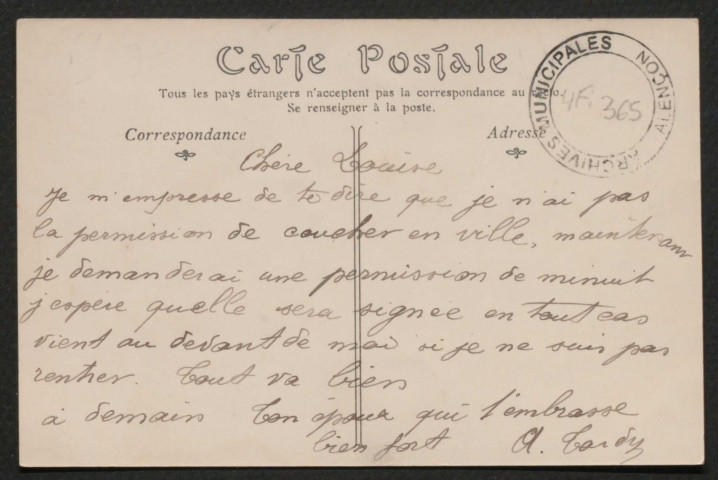 Carte Postale
Tous les pays étrangers n'acceptent pas la correspondance au
Se renseigner à la poste.
Correspondance
Adresse
ARCHIVES MUNICIPALES ALENÇON
4Fi 365
Chère Louise
Je m'empresse de te dire que je n'ai pas
la permission de coucher en ville, maintenant
je demanderai une permission de minuit
j'espère quelle sera signée en tout cas
vient au devant de moi si je ne suis pas
rentrer. Tout va bien
à demain Ton époux qui t'embrasse
bien fort A. Tardy